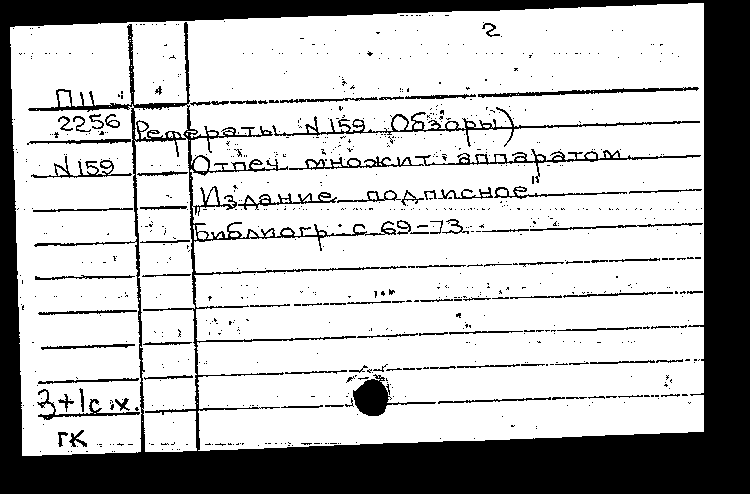 2
П11
2256 Рефераты. N 159. Обзоры)
N159 Отпеч. множит. аппаратом.
"Издание подписное"
Библиогр.: с 69-73.
3+1с.х.
ГК